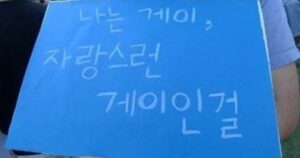 나는 게이,
자랑스런
게이인걸